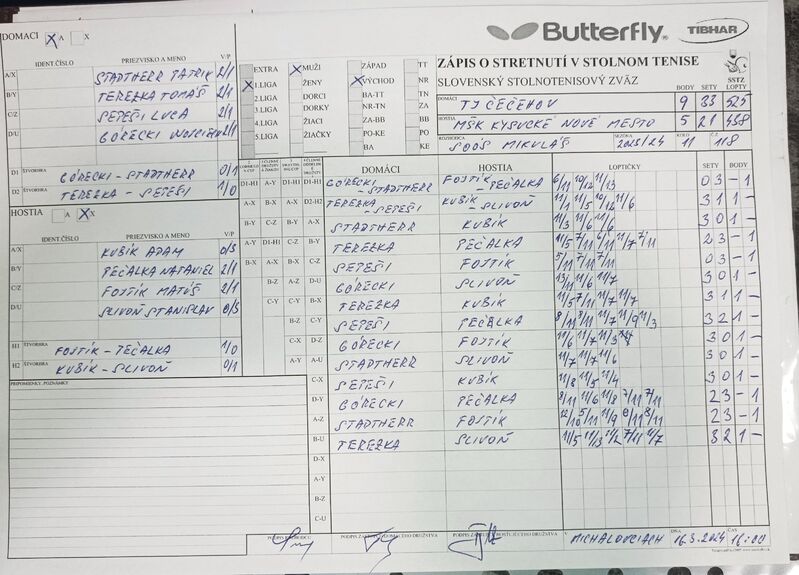 Butterfly
TIBHAR
ZÁPIS O STRETNUTÍ V STOLNOM TENISE
SLOVENSKÝ STOLNOTENISOVÝ ZVÄZ
SSTZ
BODY SETY LOPTY
DOMÁCI TJ ČEČEHOV 9 33 525
HOSTIA MŠK KYSUCKÉ NOVÉ MESTO 5 21 438
ROZHODCA SOÓŠ MIKULÁŠ SEZÓNA 2023/24 KOLO 11 Č. 118
EXTRA
1.LIGA
2.LIGA
3.LIGA
4.LIGA
5.LIGA
MUŽI
ŽENY
DORCI
DORKY
ŽIACI
ŽIAČKY
ZÁPAD
VÝCHOD
BA-TT
NR-TN
ZA-BB
PO-KE
BA
TT
NR
TN
ZA
BB
PO
KE
DOMACI X A X
IDENT.ČÍSLO PRIEZVISKO A MENO V/P
A/X STADTHERR PATRIK 2/1
B/Y TEREZKA TOMÁŠ 2/1
C/Z SEPEŠI LUCA 2/1
D/U GÓRECKI WOJCIECH 2/1
D1 ŠTVORHRA GÓRECKI - STADTHERR 0/1
D2 ŠTVORHRA TEREZKA - SEPEŠI 1/0
HOSTIA A X X
IDENT.ČÍSLO PRIEZVISKO A MENO V/P
A/X KUBÍK ADAM 0/3
B/Y PEČALKA NATANIEL 2/1
C/Z FOJTÍK MATÚŠ 2/1
D/U SLIVOŇ STANISLAV 0/3
H1 ŠTVORHRA FOJTÍK - PEČALKA 1/0
H2 ŠTVORHRA KUBÍK - SLIVOŇ 0/1
PRIPOMIENKY, POZNÁMKY
DOMÁCI HOSTIA LOPTIČKY SETY BODY
D1-H1 GÓRECKI - STADTHERR FOJTÍK - PEČALKA 6/11 10/12 11/13 0 3 - 1
D2-H2 TEREZKA - SEPEŠI KUBÍK - SLIVOŇ 3 1 1 -
A-X STADTHERR KUBÍK 11/3 11/6 11/6 3 0 1 -
B-Y TEREZKA PEČALKA 2 3 - 1
C-Z SEPEŠI FOJTÍK 5/11 7/11 7/11 0 3 - 1
D-U GÓRECKI SLIVOŇ 13/11 11/6 11/7 3 0 1 -
B-X TEREZKA KUBÍK 11/5 7/11 11/7 11/7 3 1 1 -
C-Y SEPEŠI PEČALKA 8/11 8/11 11/7 11/9 11/3 3 2 1 -
D-Z GÓRECKI FOJTÍK 11/6 11/7 11/3 3 0 1 -
A-U STADTHERR SLIVOŇ 11/7 11/7 11/6 3 0 1 -
C-X SEPEŠI KUBÍK 11/8 11/5 11/4 3 0 1 -
D-Y GÓRECKI PEČALKA 8/11 11/6 11/8 7/11 7/11 2 3 - 1
A-Z STADTHERR FOJTÍK 12/10 5/11 11/9 6/11 8/11 2 3 - 1
B-U TEREZKA SLIVOŇ 3 2 1 -
D-X
A-Y
B-Z
C-U
PODPIS ROZHODCU
V MICHALOVCIACH DŇA 16.3.2024 ČAS 16:00